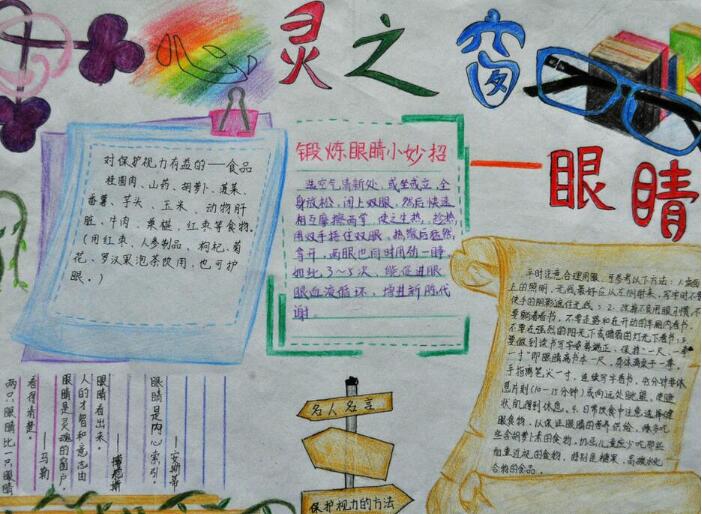 心灵之窗
——眼睛
对保护视力有益的——食品
桂圆肉、山药、胡萝卜、菠菜、
番薯、芋头、玉米、动物肝
脏、牛肉、桑椹、红枣等食物。
(用红枣、人参制品、枸杞、菊
花、罗汉果泡茶饮用,也可护
眼。)
锻炼眼睛小妙招
选空气清新处,或坐或立,全
身放松,闭上双眼,然后快速
相互摩擦两掌,使之生热,趁热
用双手捂住双眼,热散后猛然
拿开,两眼也同时用劲一睁
如此3~5次,能促进眼
眼血液循环,增进新陈代
谢。
平时注意合理用眼,可参考以下方法:1.桌面
上的照明,光线最好应从左侧射来,写字时不要
使手的阴影遮住光线;2.改掉不良用眼习惯,不
要躺着看书,不要走路和在开动的车厢内看书,
不要在强烈的阳光下或昏暗的灯光下看书;3.
要做到读书写字姿势端正,保持"一尺、一拳
一寸"即眼睛离书本一尺,身体离桌子一拳,
手指离笔尖一寸,连续写字看书,
息片刻(10—15分钟)或向远处眺望,使眼
状肌得到休息。4.日常饮食中注意选择健
眼食物,以保证眼睛的营养供给,
些含胡萝卜素的食物,
起近视的食物,特别是糖果、高碳水化
合物的食品。
眼睛是内心的索引。
——安斯蒂
人的才智和意志由
眼睛看出来。
眼睛是灵魂的窗户。
两只眼睛比一只眼睛
看得清楚。
——马勒
名人名言
保护视力的方法